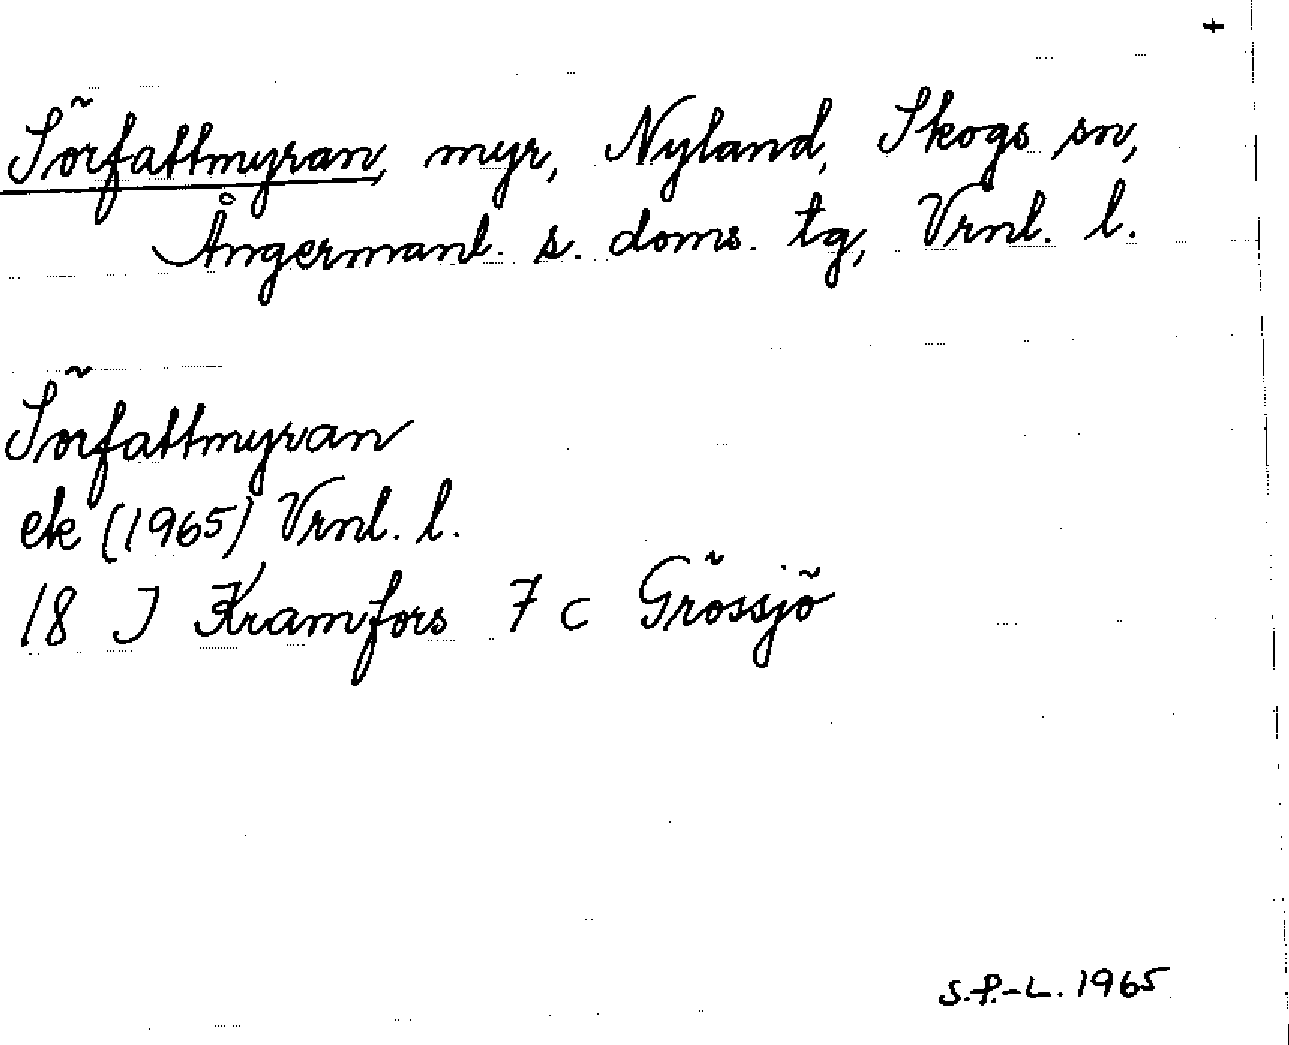 +
Sörfattmyran, myr, Nyland, Skogs sn,
Ångermanl. s. doms. tg, Vrnl. l.
Sörfattmyran
ek (1965) Vrnl. l.
18 J Kramfors 7 c Grössjö
S.P.-L. 1965